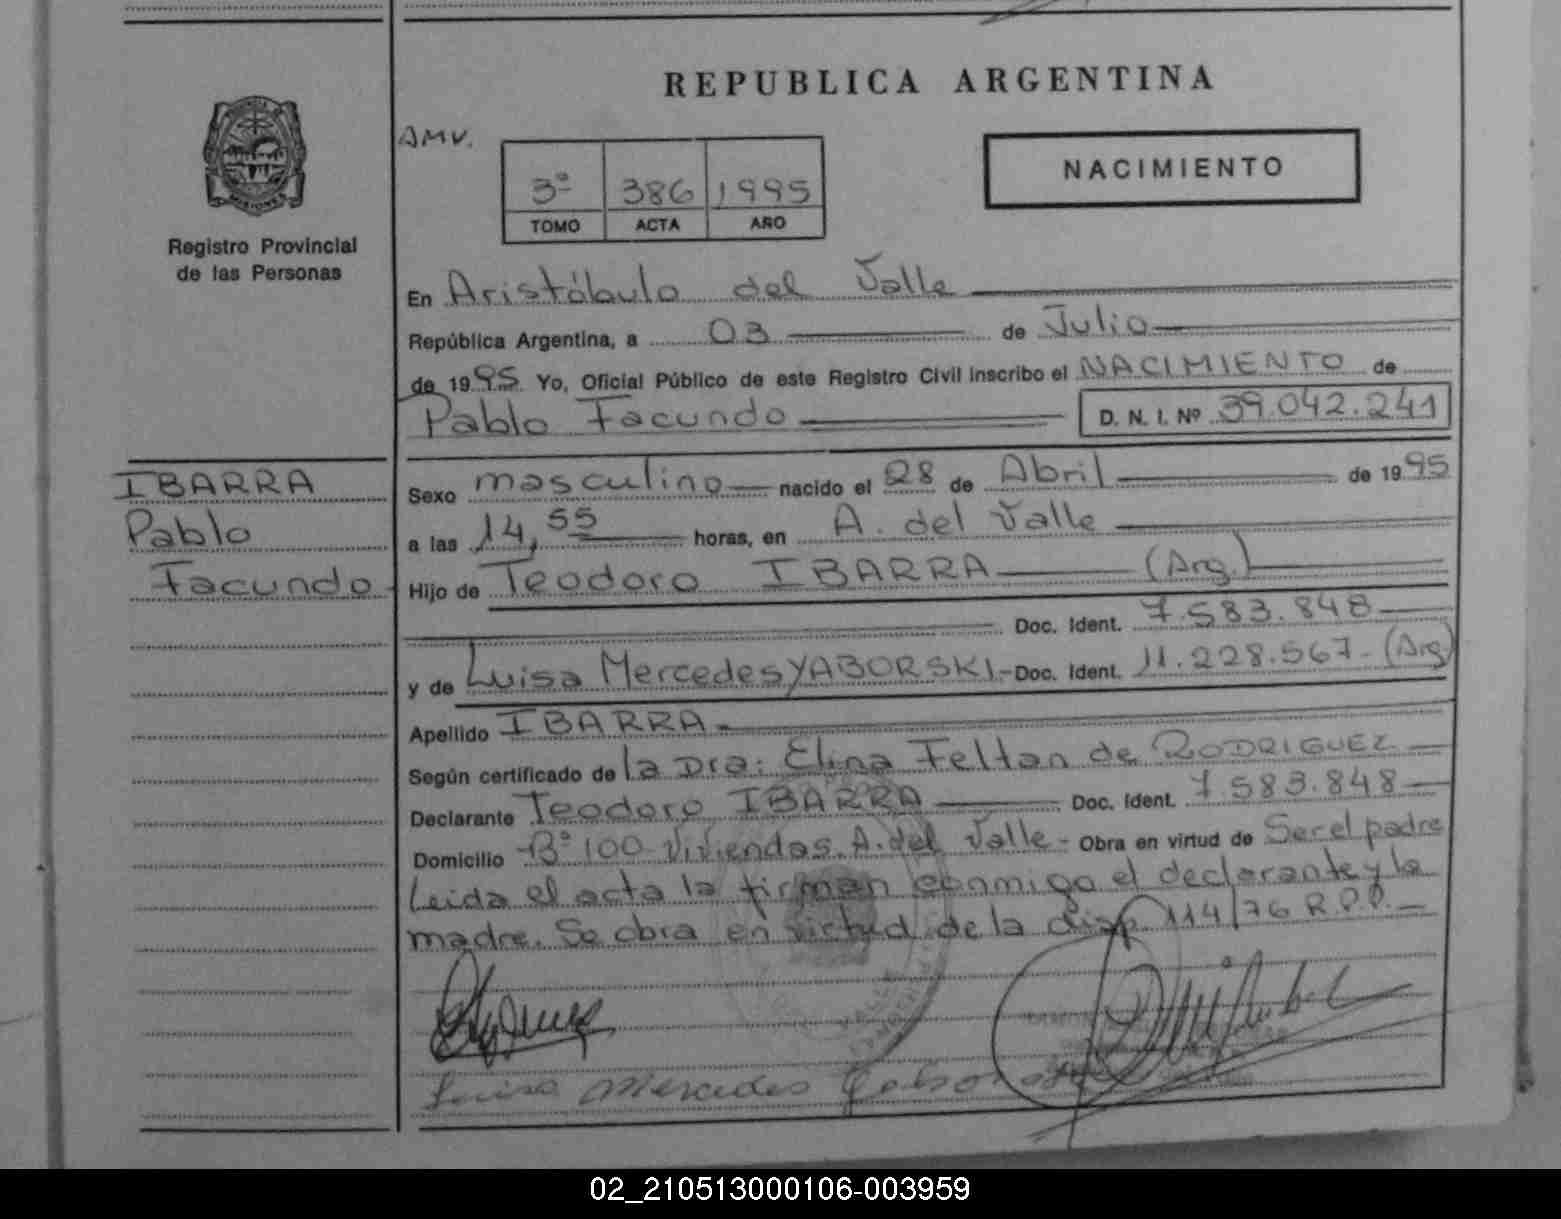 REPUBLICA ARGENTINA
AMV.
3º 386 1995
TOMO ACTA AÑO
NACIMIENTO
MISIONES
Registro Provincial
de las Personas
En Aristóbulo del Valle
República Argentina, a 03 de Julio
de 1995. Yo, Oficial Público de este Registro Civil inscribo el NACIMIENTO de
Pablo Facundo D. N. I. Nº 39.042.241
IBARRA
Pablo
Facundo
Sexo masculino nacido el 28 de Abril de 1995
a las 14,55 horas, en A. del Valle
Hijo de Teodoro IBARRA (Arg.)
Doc. Ident. 7.583.848
y de Luisa Mercedes YABORSKI.- Doc. Ident. 11.228.567-(Arg)
Apellido IBARRA-
Según certificado de la Dra: Elina Feltan de RODRIGUEZ
Declarante Teodoro IBARRA Doc. Ident. 7.583.848
Domicilio Bº 100 Viviendas. A. del Valle- Obra en virtud de Ser el padre
Leida el acta la firman conmigo el declarante y la
madre. Se obra en virtud de la disp. 114/76 R.P.P.
Luisa Mercedes
02_210513000106-003959